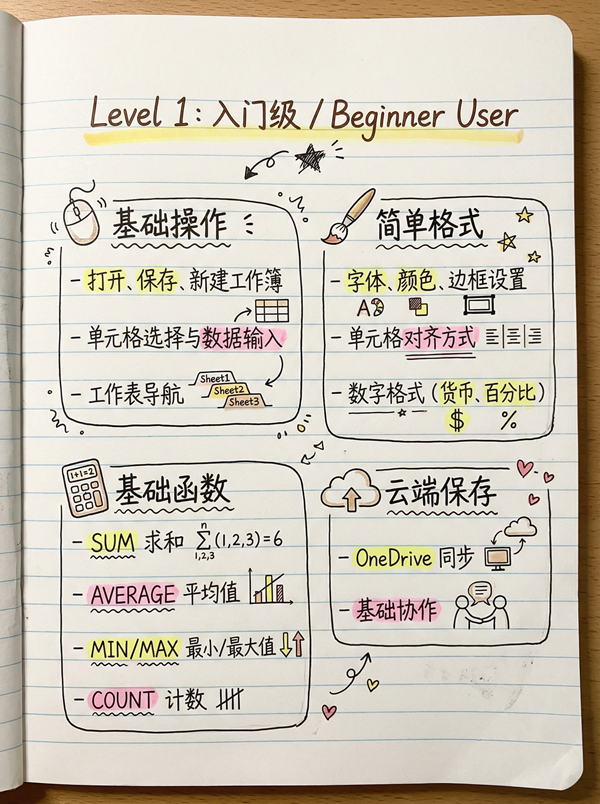 Level 1: 入门级 / Beginner User
基础操作
- 打开、保存、新建工作簿
- 单元格选择与数据输入
- 工作表导航
Sheet1
Sheet2
Sheet3
简单格式
- 字体、颜色、边框设置
A
- 单元格对齐方式
- 数字格式 (货币、百分比)
$ %
1+1=2
基础函数
- SUM 求和 n∑1,2,3 (1,2,3)=6
- AVERAGE 平均值
- MIN/MAX 最小/最大值
- COUNT 计数
云端保存
- OneDrive 同步
- 基础协作